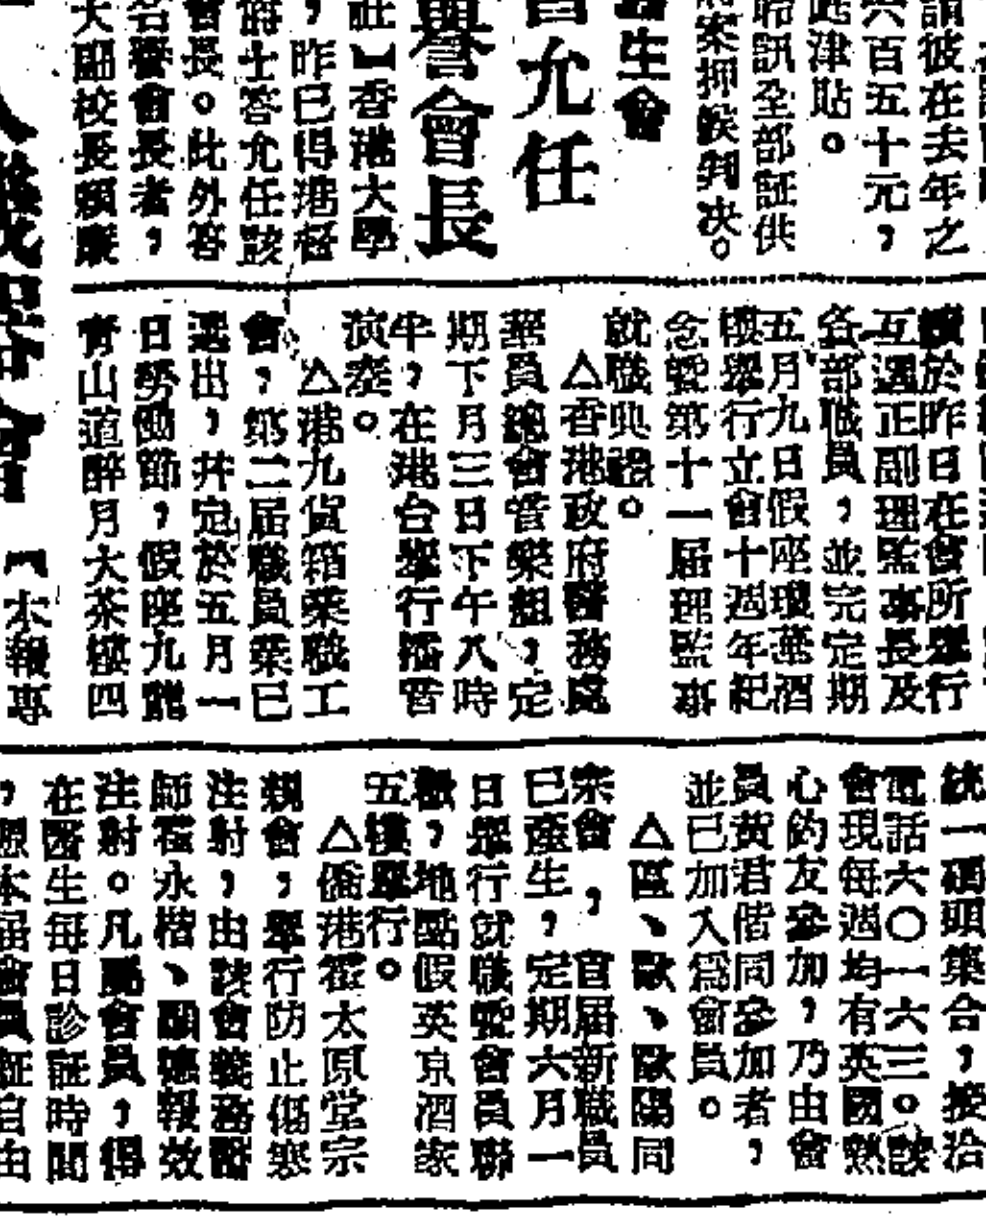 謂彼在去年之
六百五十元，
此津貼。
聆訊全部証供
案押候判决。
生會
允任
譽會長
社】香港大學
，昨已得港督
爵士答允任該
會長。此外答
名譽會長者，
大校長賴廉
續於昨日在會所舉行
互選正副理監事長及
各部職員，並完定期
五月九日假座瓊華酒
樓舉行立會十週年紀
念暨第十一届理監事
就職典禮。
△香港政府醫務處
華員總會音樂組，定
期下月三日下午八時
半，在港台舉行播音
演奏。
△港九貨箱業職工
會，第二届職員業已
選出，并定於五月一
日勞働節，假座九龍
青山道醉月大茶樓四
【本報專
統一碼頭集合，接洽
電話六〇一六三。該
會現每週均有英國熟
心釣友參加，乃由會
員黃君偕同參加者，
並已加入為會員。
△區、歐、歐陽同
宗會，首届新職員
已產生，定期六月一
日舉行就職暨會員聯
歡，地點假英京酒家
五樓舉行。
△僑港霍太原堂宗
親會，舉行防止傷寒
注射，由該會義務醫
師霍永楷、德報效
注射。凡屬會員，得
在醫生每日診証時間
，憑本届會員証自由